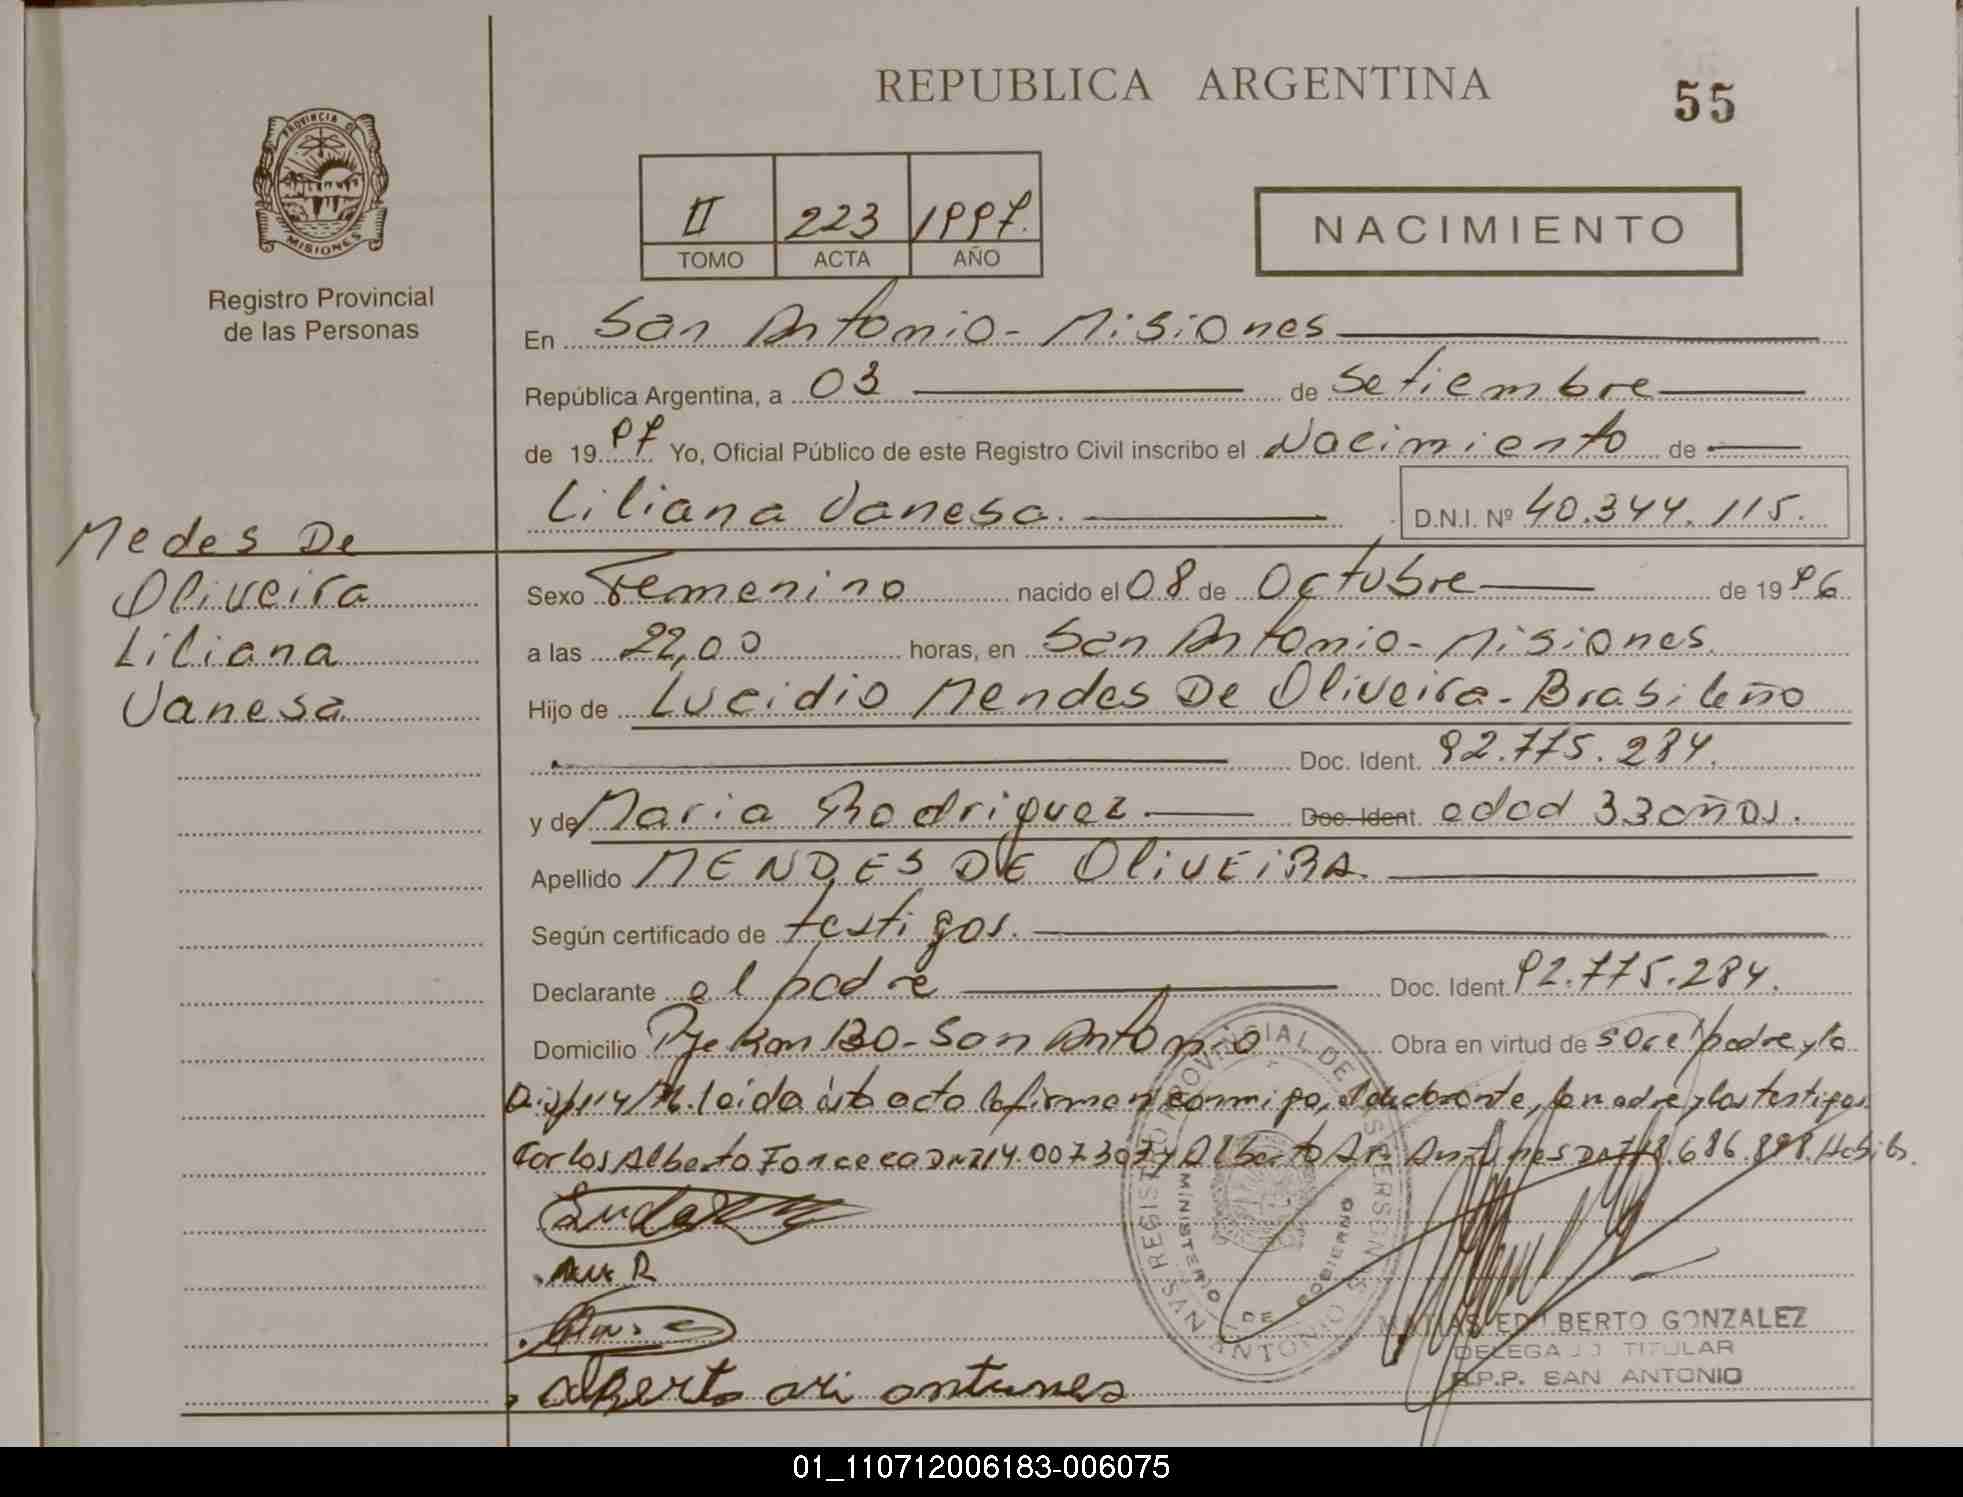 REPUBLICA ARGENTINA
55
PROVINCIA DE
MISIONES
Registro Provincial
de las Personas
II 223 1997.
TOMO ACTA AÑO
NACIMIENTO
En San Antonio - Misiones
República Argentina, a 03 de Setiembre
de 1997 Yo, Oficial Público de este Registro Civil inscribo el Nacimiento de
Liliana Vanesa. D.N.I. Nº 40.344.115.
Medes De
Oliveira
Liliana
Vanesa
Sexo Femenino nacido el 08 de Octubre de 1996
a las 22,00 horas, en San Antonio - Misiones.
Hijo de Lucidio Mendes De Oliveira - Brasileño
Doc. Ident. 92.775.284.
y de Maria Rodriguez Doc. Ident. edad 33 años.
Apellido MENDES DE OLIVEIRA
Según certificado de testigos.
Declarante el padre Doc. Ident. 92.775.284.
Domicilio Pje Km 130 - San Antonio Obra en virtud de ser el padre y la
leida esta acta la firman conmigo, el declarante, la madre y los testigos
Carlos Alberto Fonceca 14.007.307 y Alberto Ari Antunes 18.686.898 Habiles.
Alberto ari antunes
REGISTRO PROVINCIAL DE LAS PERSONAS
MINISTERIO DE GOBIERNO
SAN ANTONIO
MATIAS EDILBERTO GONZALEZ
DELEGADO TITULAR
R.P.P. SAN ANTONIO
01_110712006183-006075